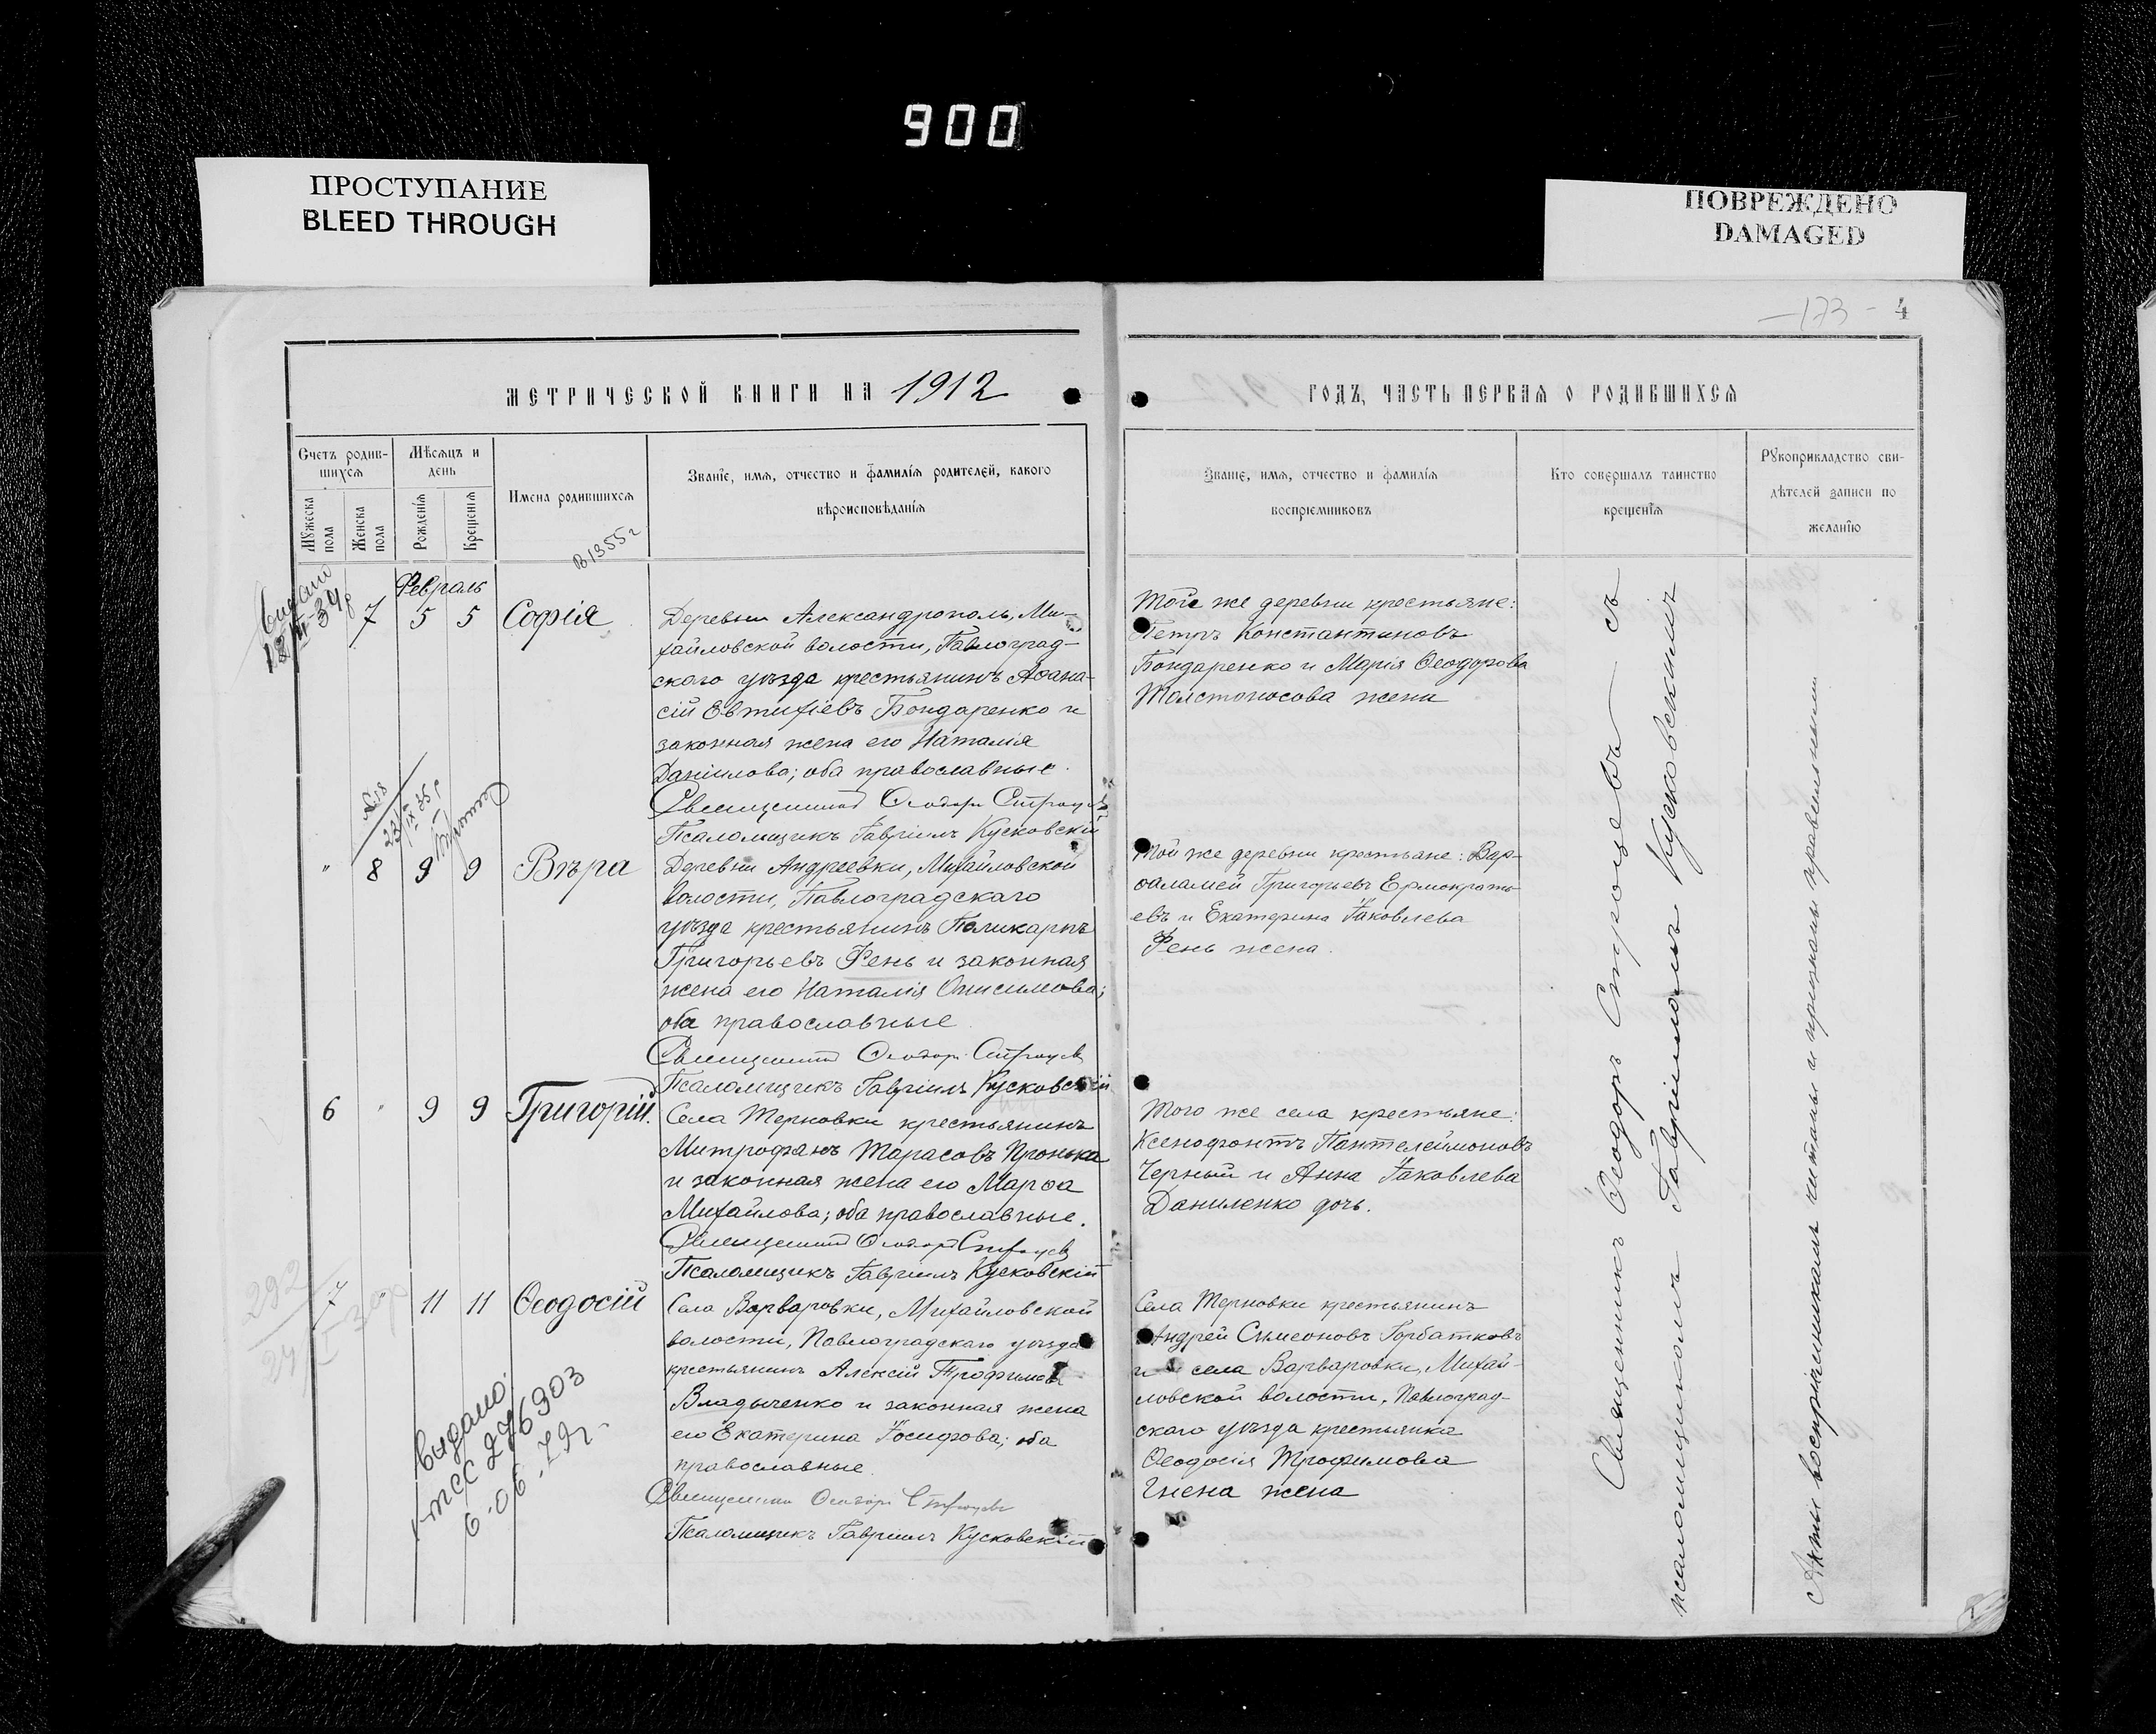 900
ПРОСТУПАНИЕ
BLEED THROUGH
ПОВРЕЖДЕНО
DAMAGED
173 - 4
МЕТРИЧЕСКОЙ КНИГИ НА 1912
ГОДЪ, ЧАСТЬ ПЕРВАЯ О РОДИВШИХСЯ
Счетъ родив-
шихся
Мужеска
пола
Женска
пола
Мѣсяцъ и
день
Рожденія
Крещенія
Имена родившихся
Званіе, имя, отчество и фамилія родителей, какого
вѣроисповѣданія
Званіе, имя, отчество и фамилія
воспріемниковъ
Кто совершалъ таинство
крещенія
Рукоприкладство сви-
дѣтелей записи по
желанію
В 1355г
Февраль
7 5 5 Софія
Деревни Александрополь, Ми-
хайловской волости, Павлоград-
скаго уѣзда крестьянинъ Аѳана-
сій Евтихіевъ Бондаренко и
законная жена его Наталія
Даніилова; оба православные.
Священникъ Ѳеодоръ Строцевъ
Псаломщикъ Гавріилъ Кусковскій
Той же деревни крестьяне:
Петръ Константиновъ
Бондаренко и Марія Ѳеодорова
Толстоносова жена
" 8 9 9 Вѣра
Деревни Андреевки, Михайловской
волости, Павлоградскаго
уѣзда крестьянинъ Поликарпъ
Григорьевъ Фень и законная
жена его Наталія Онисимова;
оба православные
Священникъ Ѳеодоръ Строцевъ
Псаломщикъ Гавріилъ Кусковскій
Той же деревни крестьяне: Вар-
ѳаламей Григорьевъ Ермократь-
евъ и Екатерина Іаковлева
Фень жена.
6 " 9 9 Григорій.
Села Терновки крестьянинъ
Митрофанъ Тарасовъ Пронька
и законная жена его Марѳа
Михайлова; оба православные.
Священникъ Ѳеодоръ Строцевъ
Псаломщикъ Гавріилъ Кусковскій
Того же села крестьяне:
Ксенофонтъ Пантелеимоновъ
Черный и Анна Іаковлева
Даниленко дочь.
7 " 11 11 Ѳеодосій
Села Варваровки, Михайловской
волости, Павлоградскаго уѣзда
крестьянинъ Алексій Трофимовъ
Владыченко и законная жена
его Екатерина Іосифова; оба
православные.
Священникъ Ѳеодоръ Строцевъ
Псаломщикъ Гавріилъ Кусковскій
Села Терновки крестьянинъ
Андрей Симеоновъ Горбатковъ
и села Варваровки, Михай-
ловской волости, Павлоград-
скаго уѣзда крестьянка
Ѳеодосія Трофимова
Гнена жена
выдано.
276903
6-06-72г.
Священникъ Ѳеодоръ Строцевъ съ
псаломщикомъ Гавріиломъ Кусковскимъ
Акты воспріемникамъ читаны и признаны правильными